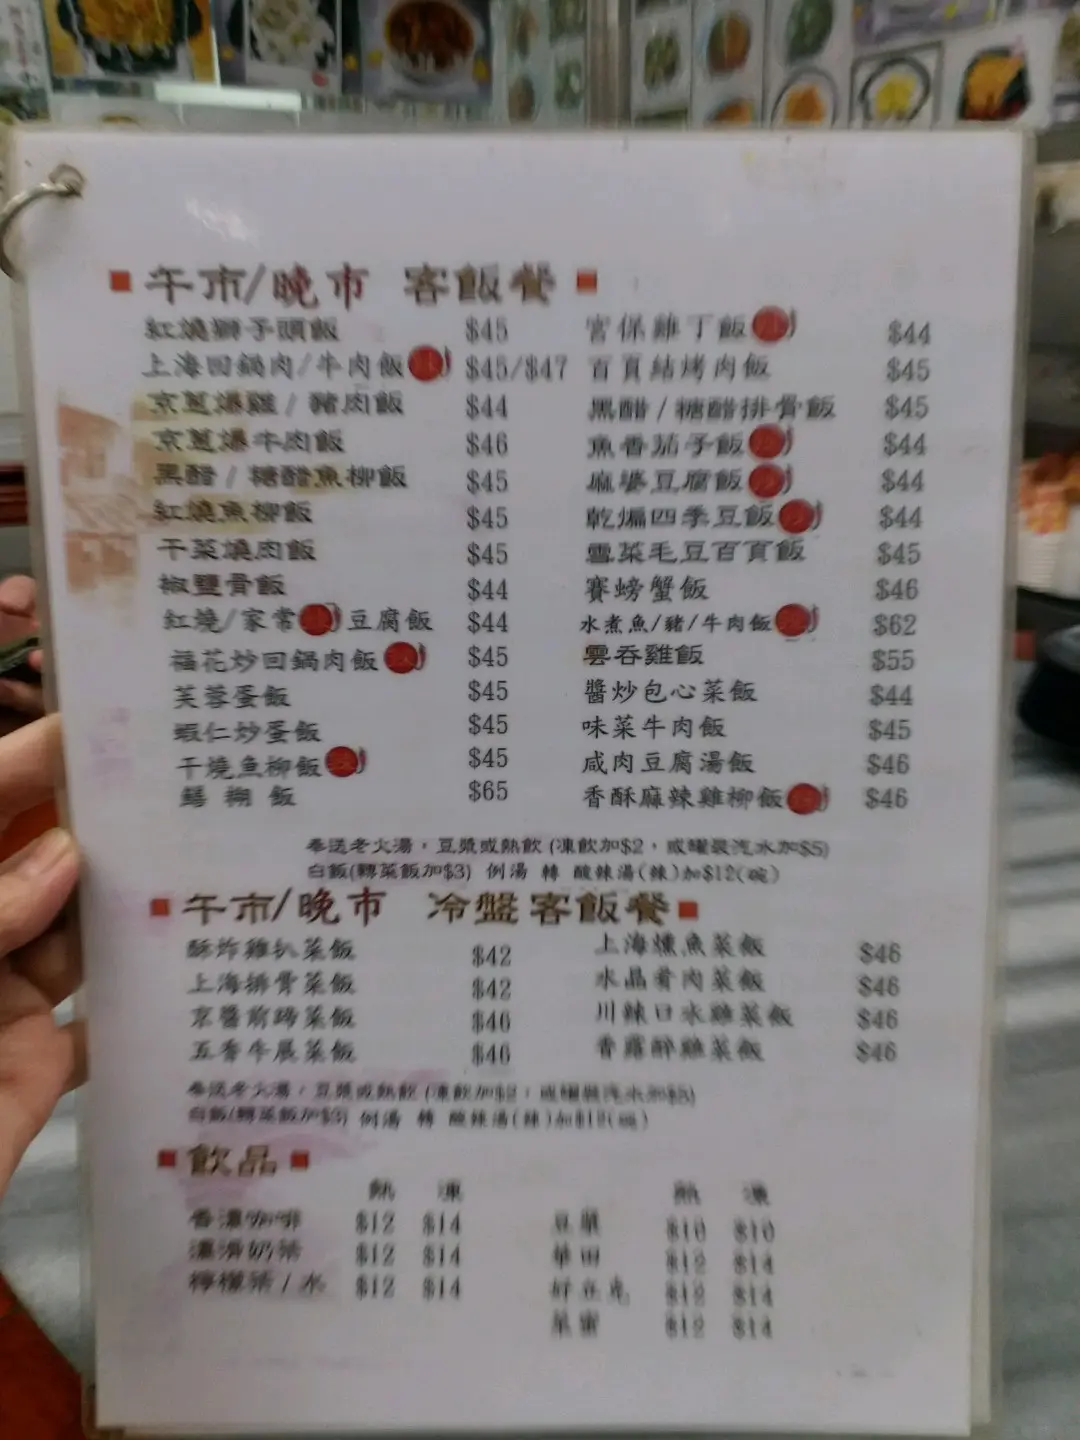 午市/晚市 客飯餐
紅燒獅子頭飯 $45
上海回鍋肉/牛肉飯 $45/$47
京蔥爆雞/豬肉飯 $44
京蔥爆牛肉飯 $46
黑醋/糖醋魚柳飯 $45
紅燒魚柳飯 $45
干菜燒肉飯 $45
椒鹽骨飯 $44
紅燒/家常 豆腐飯 $44
福花炒回鍋肉飯 $45
芙蓉蛋飯 $45
蝦仁炒蛋飯 $45
干燒魚柳飯 $45
鱔糊飯 $65
宮保雞丁飯 $44
百頁結烤肉飯 $45
黑醋/糖醋排骨飯 $45
魚香茄子飯 $44
麻婆豆腐飯 $44
乾煸四季豆飯 $44
雪菜毛豆百頁飯 $45
賽螃蟹飯 $46
水煮魚/豬/牛肉飯 $62
雲吞雞飯 $55
醬炒包心菜飯 $44
味菜牛肉飯 $45
咸肉豆腐湯飯 $46
香酥麻辣雞柳飯 $46
奉送老火湯,豆漿或熱飲 (凍飲加$2,或罐裝汽水加$5)
白飯(轉菜飯加$3) 例湯 轉 酸辣湯(辣)加$12(碗)
午市/晚市 冷盤客飯餐
酥炸雞扒菜飯 $42
上海排骨菜飯 $42
京醬前蹄菜飯 $46
五香牛展菜飯 $46
上海燻魚菜飯 $46
水晶肴肉菜飯 $46
川辣口水雞菜飯 $46
香露醉雞菜飯 $46
奉送老火湯,豆漿或熱飲 (凍飲加$2,或罐裝汽水加$5)
白飯(轉菜飯加$3) 例湯 轉 酸辣湯(辣)加$12(碗)
飲品
熱 凍
香濃咖啡 $12 $14
濃滑奶茶 $12 $14
檸檬茶/水 $12 $14
熱 凍
豆漿 $10 $10
華田 $12 $14
好立克 $12 $14
菜蜜 $12 $14